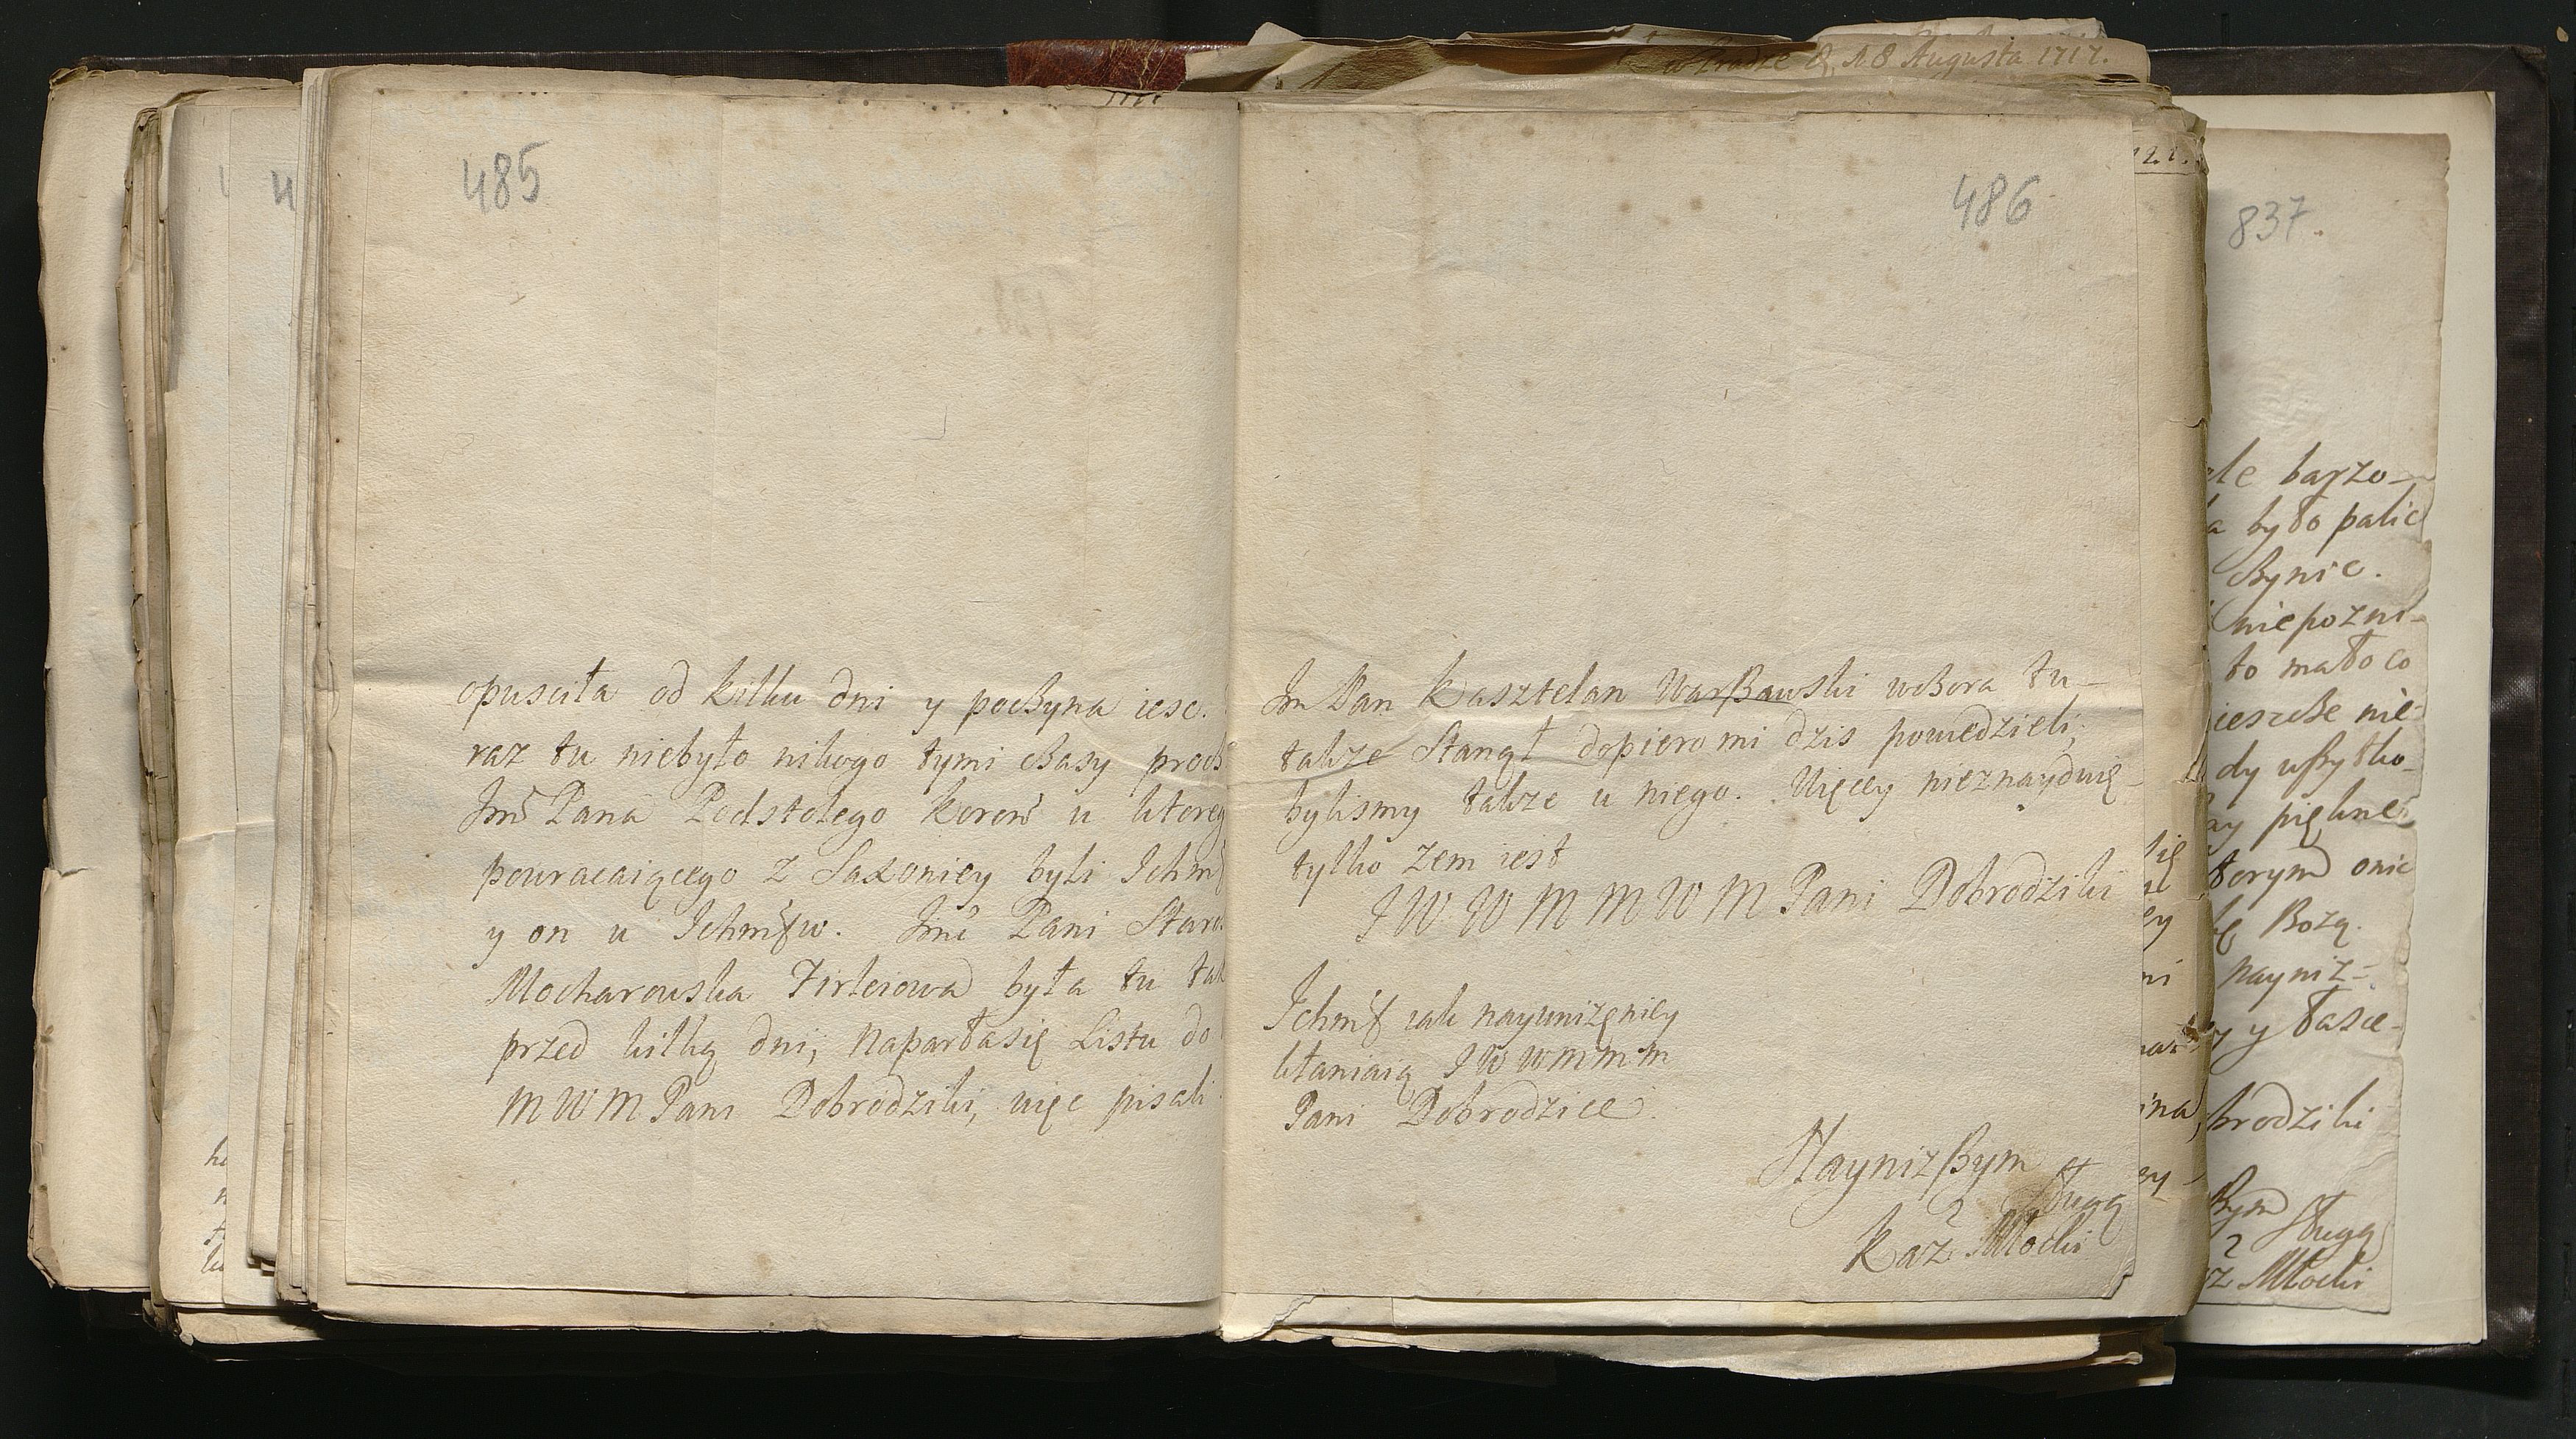 485
opusciła od kilku dni y poczyna iesc.
raz tu niebyło nikogo tymi czasy
Jmć Pana Podstolego Koron u
powracaiącego z Saxoniey byli
y on u Ichmśćw. Jmć Pani
Mocharowska Firleiowa była tu
przed kilką dni, naparłasię Listu do
MWM Pani Dobrodziki, więc pisali
486
Jm Pan Kasztelan Warßawski wczora tu
takze Stanął dopiero mi dzis powiedzieli,
bylismy takze u niego. Więcey nieznayduię
tylko zem iest
J W W M M W M Pani Dobrodziki
Ichmść iak nayunizęniey
kłaniaią J W W M M M
Pani Dobrodzice.
Naynizßym
Sługą
Kaz Młocki
18 Augusta 1717.
837.
barzo
było palic
czynic.
niepozni
to mało co
ieszcze nie
dy wszytko
piękne
ktorym onie
Bozą.
nayniz
y łasce
Sługą
Młocki